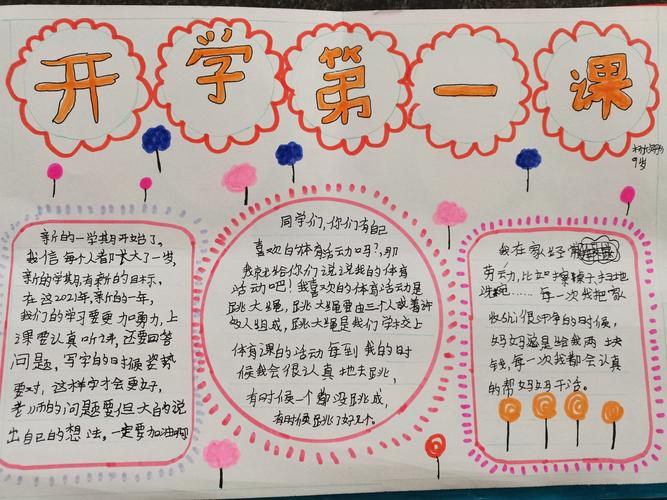 开学第一课
9岁
新的一学期开始了。
我们每个人都长大了一岁,
新的学期有新的目标,
在这2021年,新的一年,
我们的学习要更加勇力,上
课要认真听课,还要回答
问题,写字的时候姿势
要对,这样字才会更好,
老师的问题要但大的说
出自己的想法。一定要加油啊
同学们,你们有自己
喜欢的体育活动吗?,那
我就给你们说说我的体育
活动吧!我喜欢的体育活动是
跳大绳,跳大绳要由三个人或着许
多人组成,跳大绳是我们学校上
体育课的活动每到我的时
候我会很认真地去跳,
有时候一个都没跳成,
有时候跳了好几个。
我在家经常
劳动,比如擦桌子,扫地
洗碗……每一次我把家
收拾很干净的时候,
妈妈总是给我两块
钱,每一次我都会认真
的帮妈妈干活。